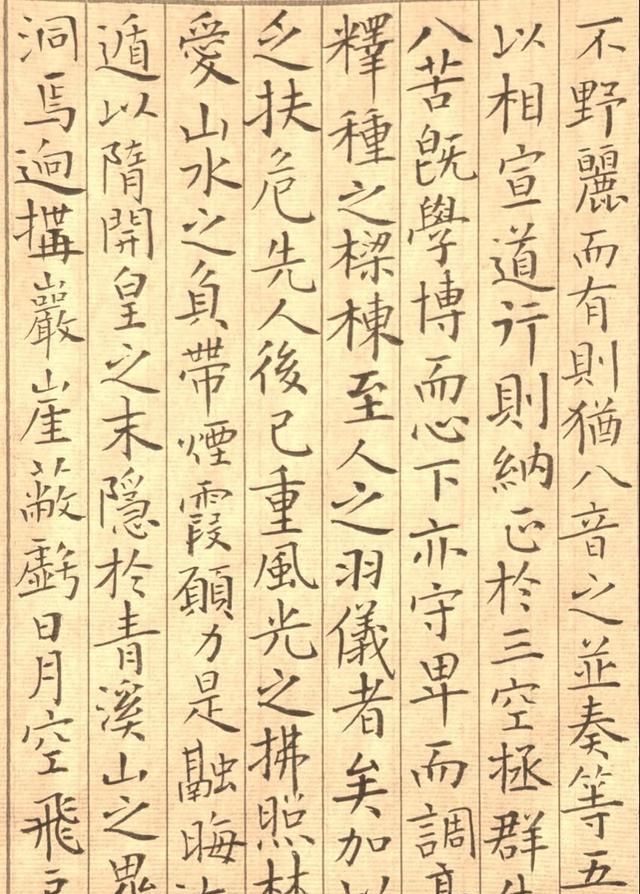 不野麗而有則猶八音之並奏等五
以相宣道行則納正於三空拯群
八苦既學博而心下亦守卑而調
釋種之樑棟至人之羽儀者矣加以
乏扶危先人後己重風光之拂照林
愛山水之負帶煙霞願力是融晦
遁以隋開皇之末隱於青溪山之鬼
洞焉迥構巖崖蔽虧日月空飛